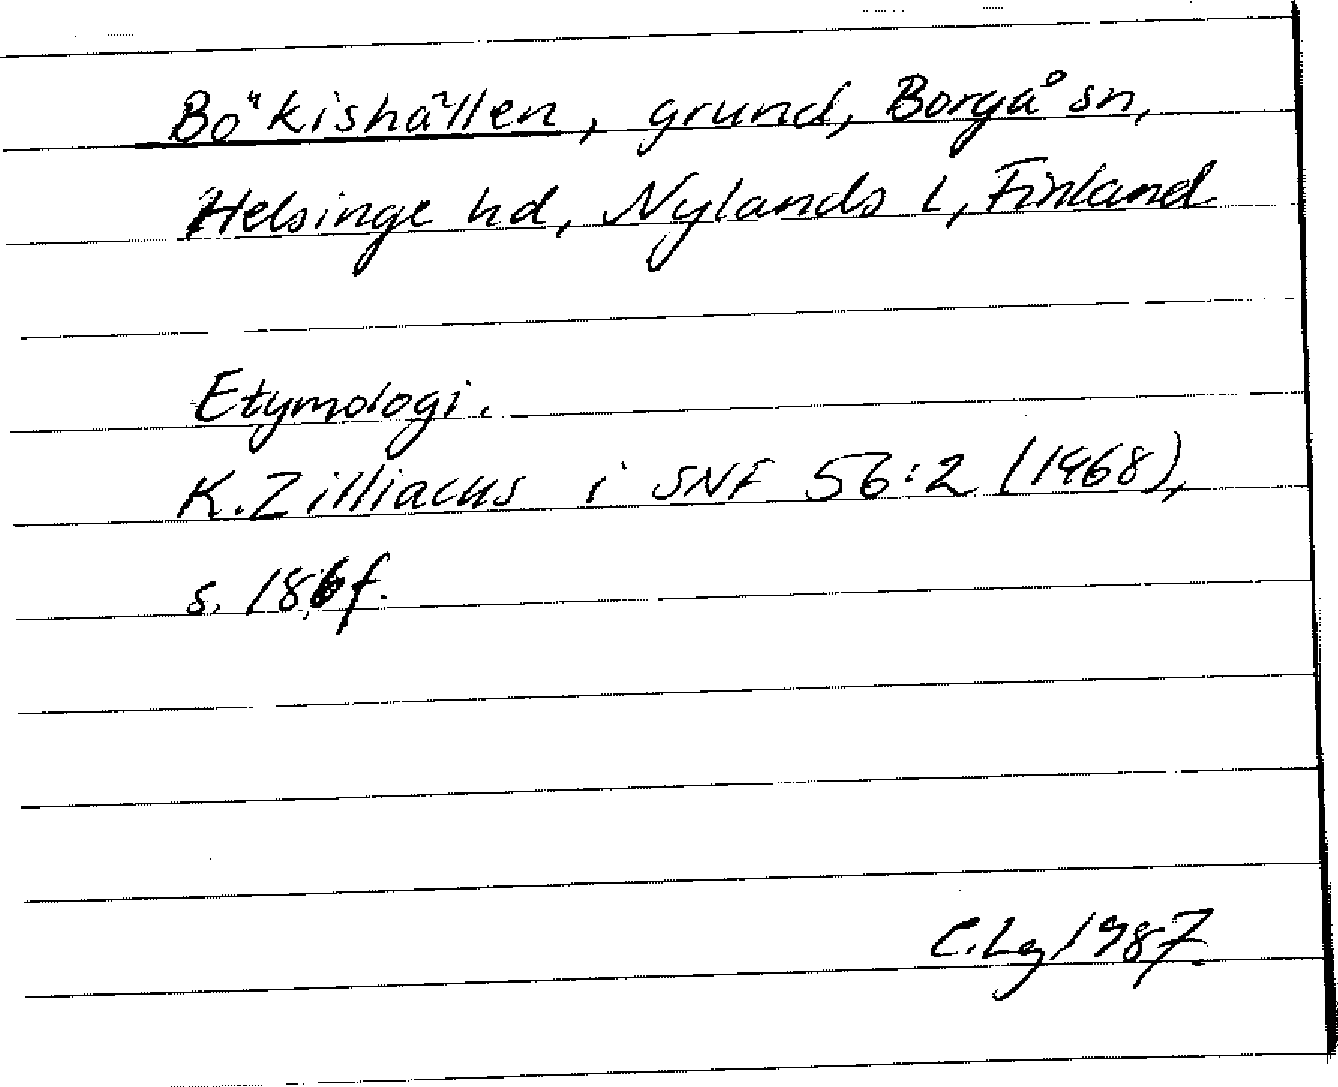 Bökishällen, grund, Borgå sn,
Helsinge hd, Nylands l, Finland
Etymologi.
K. Zilliacus i SNF 56:2 (1968),
s. 186 f.
C. Lg 1987